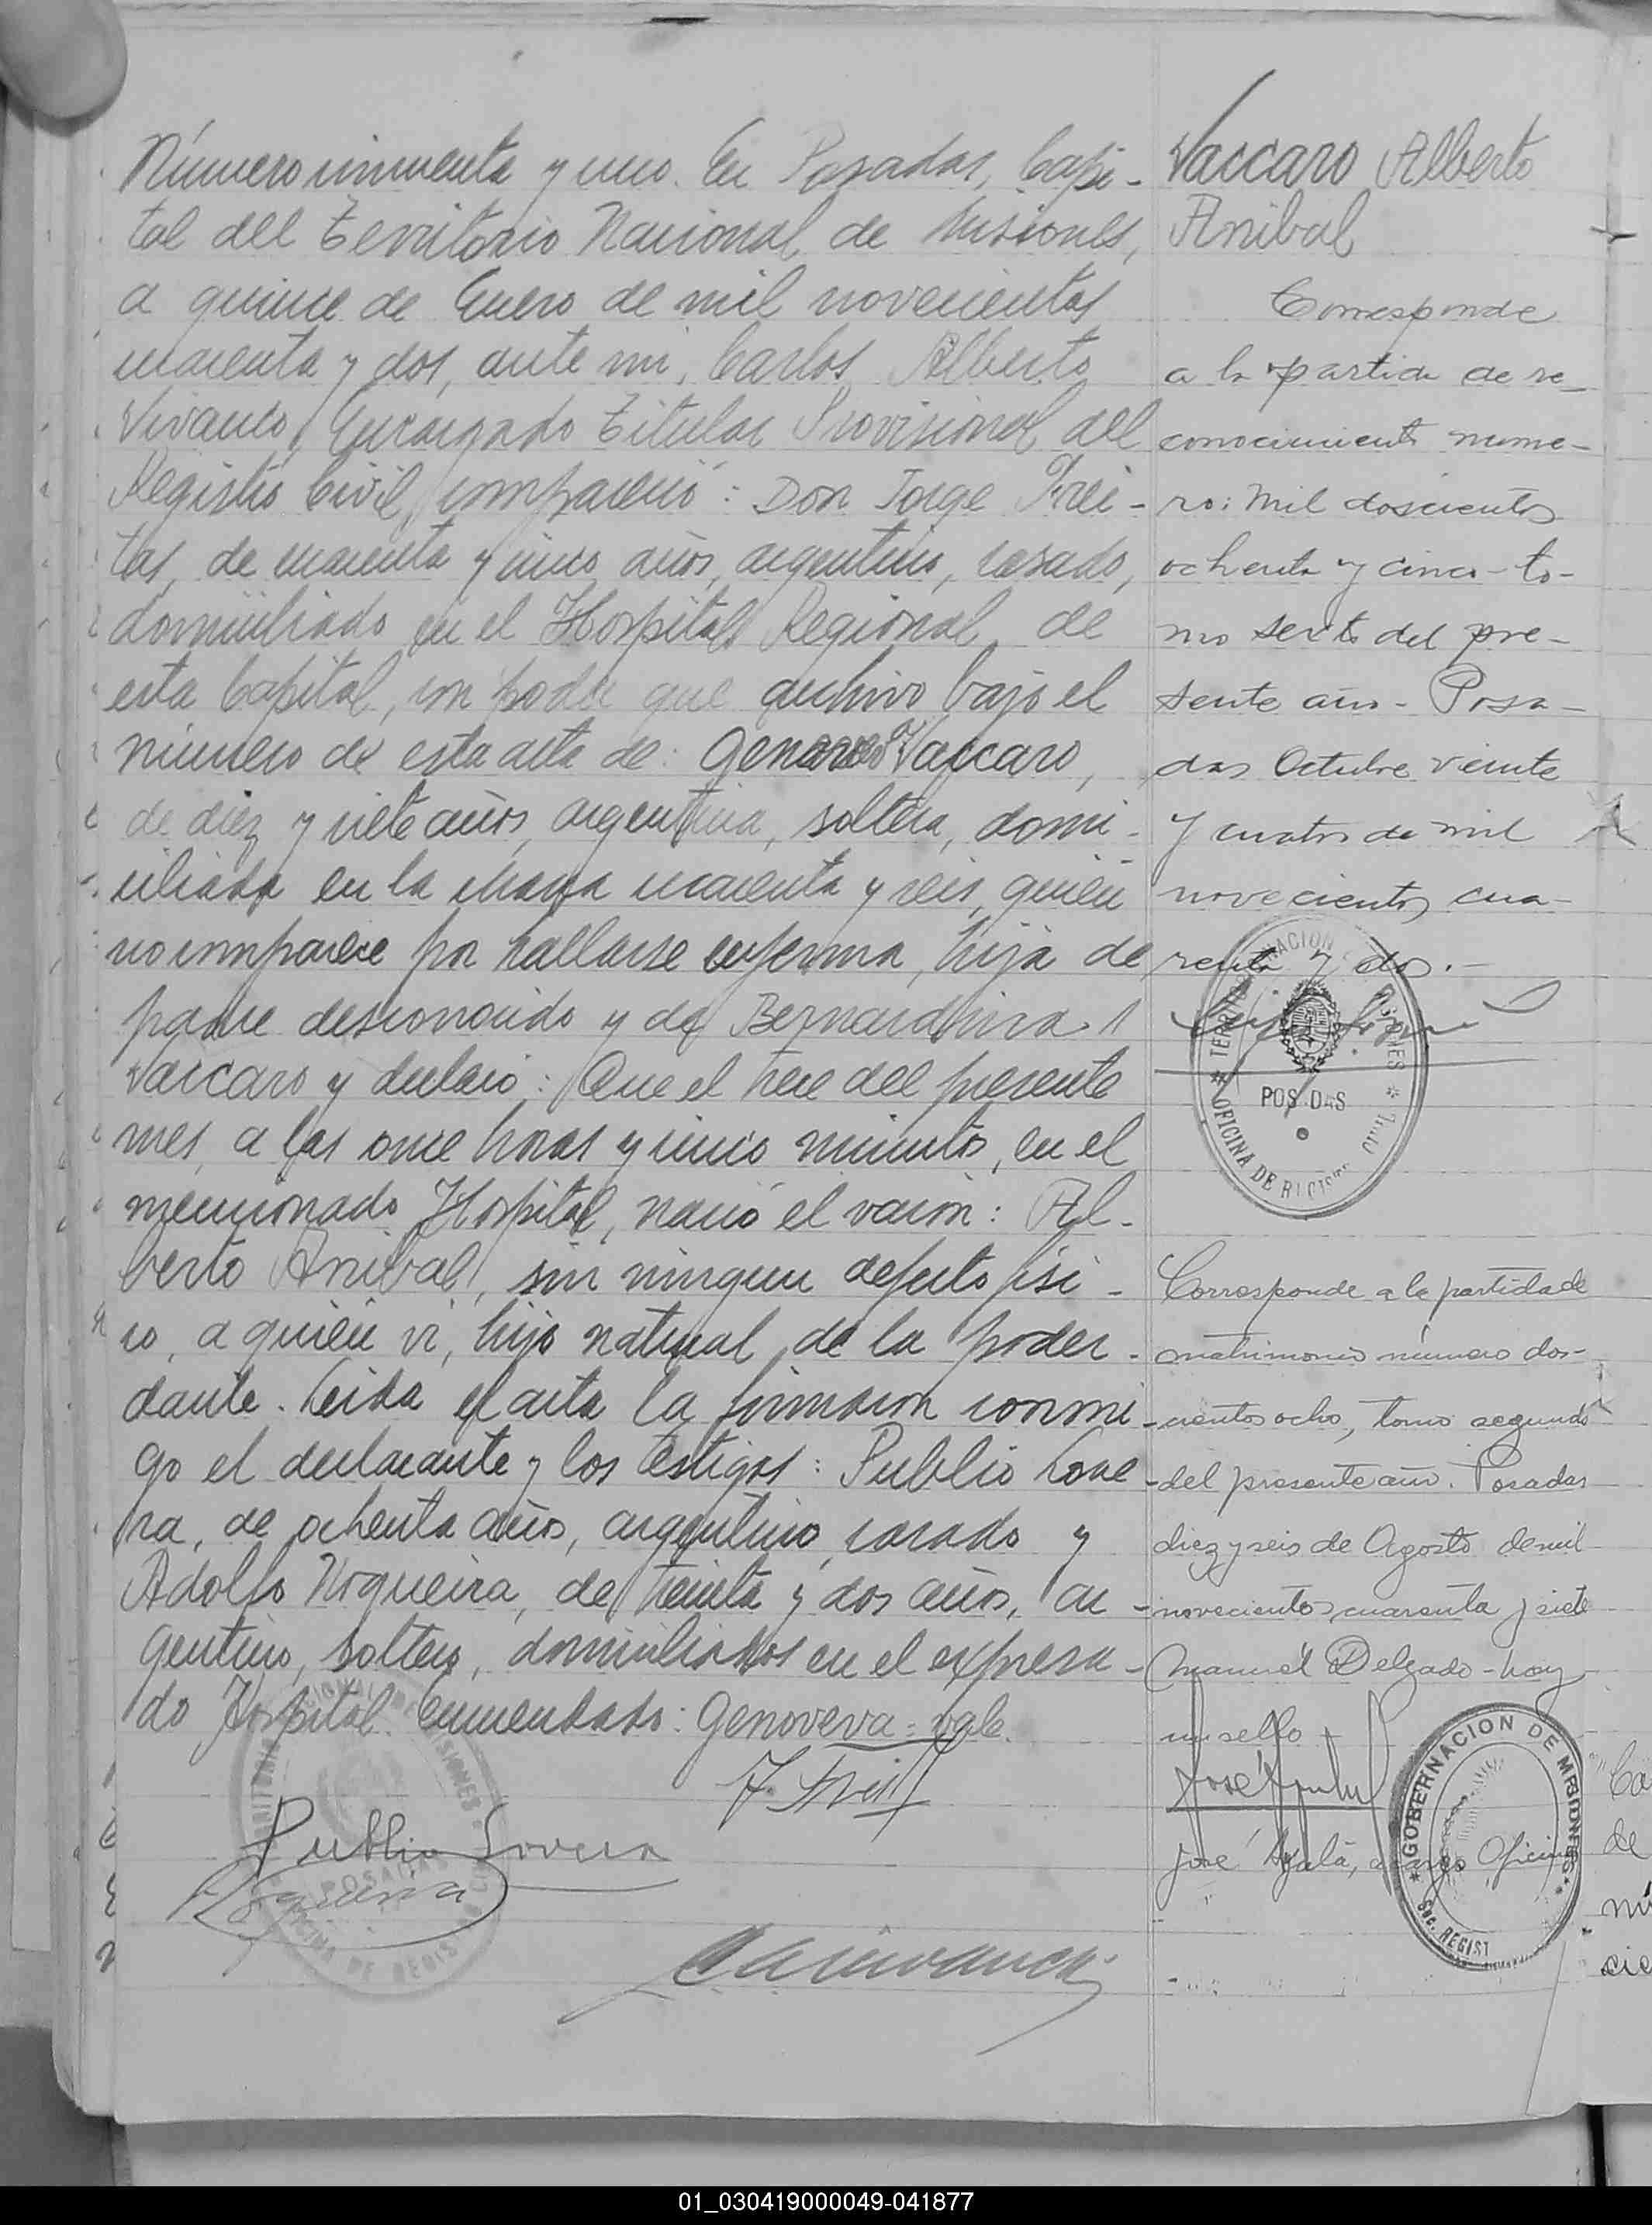 Número cincuenta y uno. En Posadas, Capi-
tal del Territorio Nacional de Misiones,
a quince de Enero de mil novecientos
cuarenta y dos, ante mi, Carlos Alberto
Vivanco, Encargado Titular Provisional del
Registro Civil, compareció: Don Jorge Frei-
tas, de cuarenta y cinco años, argentino, casado,
domiciliado en el Hospital Regional de
esta Capital, con poder que archivo bajo el
número de esta acta de: Genoveva Vaccaro,
de diez y siete años, argentina, soltera, domi-
ciliada en la chacra cuarenta y seis, quién
no comparece por hallarse enferma, hija de
padre desconocido y de Bernardina
Vaccaro y declaró: Que el trece del presente
mes, a las once horas y cinco minutos, en el
mencionado Hospital, nació el varón: Al-
berto Anibal, sin ningun defecto fisi-
co, a quién vi, hijo natural de la poder-
dante. Leida el acta la firmaron conmi-
go el declarante y los testigos: Publio Love-
ra, de ochenta años, argentino, casado y
Adolfo Nogueira, de treinta y dos años, ar-
gentino, soltero, domiciliados en el expresa-
do Hospital. Enmendado: Genoveva=vale.
J. Freitas
Publio Lovera
Nogueira
Vaccaro Alberto
Anibal
Corresponde
a la partida de re-
conocimiento nume-
ro: mil doscientos
ochenta y cinco - to-
mo sexto del pre-
sente año - Posa-
das Octubre veinte
y cuatro de mil
novecientos cua-
renta y dos.-
POSADAS
OFICINA DE REGISTRO
Corresponde a la partida de
matrimonio número dos-
cientos ocho, tomo segundo
del presente año. Posadas
diez y seis de Agosto de mil
novecientos cuarenta y siete
Manuel Delgado - hay
un sello
José Ayala
José Ayala, a cargo Oficina
GOBERNACION DE MISIONES
Sec. REGIST
Ca
de
nú
cie
01_030419000049-041877